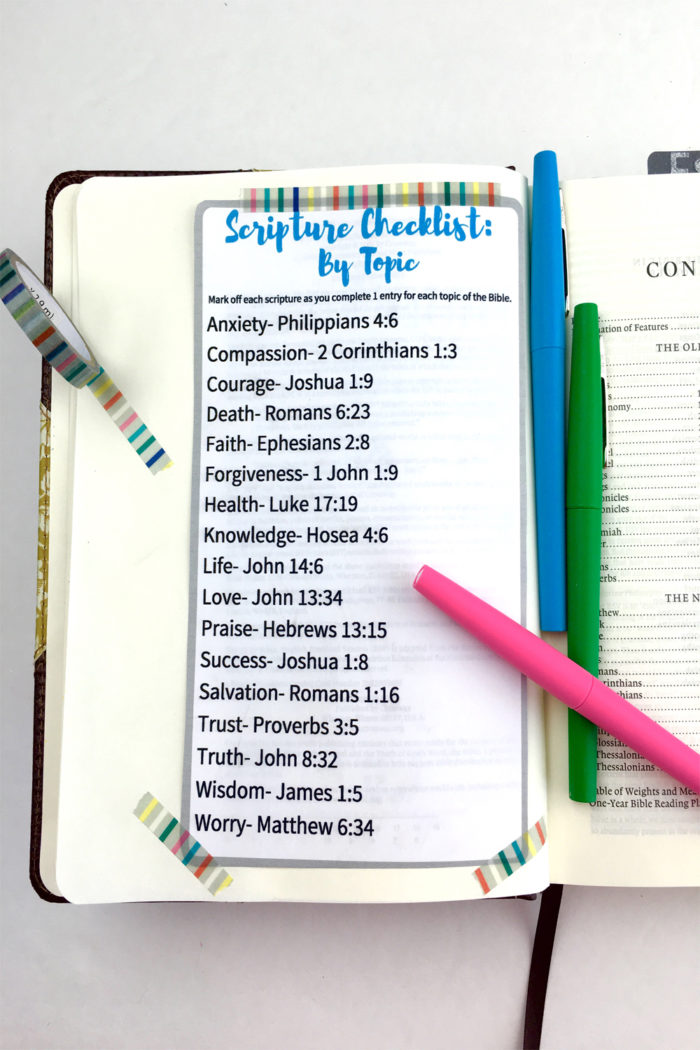 Scripture Checklist:
By Topic
Mark off each scripture as you complete 1 entry for each topic of the Bible.
Anxiety- Philippians 4:6
Compassion- 2 Corinthians 1:3
Courage- Joshua 1:9
Death- Romans 6:23
Faith- Ephesians 2:8
Forgiveness- 1 John 1:9
Health- Luke 17:19
Knowledge- Hosea 4:6
Life- John 14:6
Love- John 13:34
Praise- Hebrews 13:15
Success- Joshua 1:8
Salvation- Romans 1:16
Trust- Proverbs 3:5
Truth- John 8:32
Wisdom- James 1:5
Worry- Matthew 6:34
CON
ation of Features
THE OL
onomy
nicles
onicles
miah
erbs
THE N
thew
mans
rinthians
thians
olossia
Thessalon
Thessalonians
Table of Weights and Mea
One-Year Bible Reading Pl